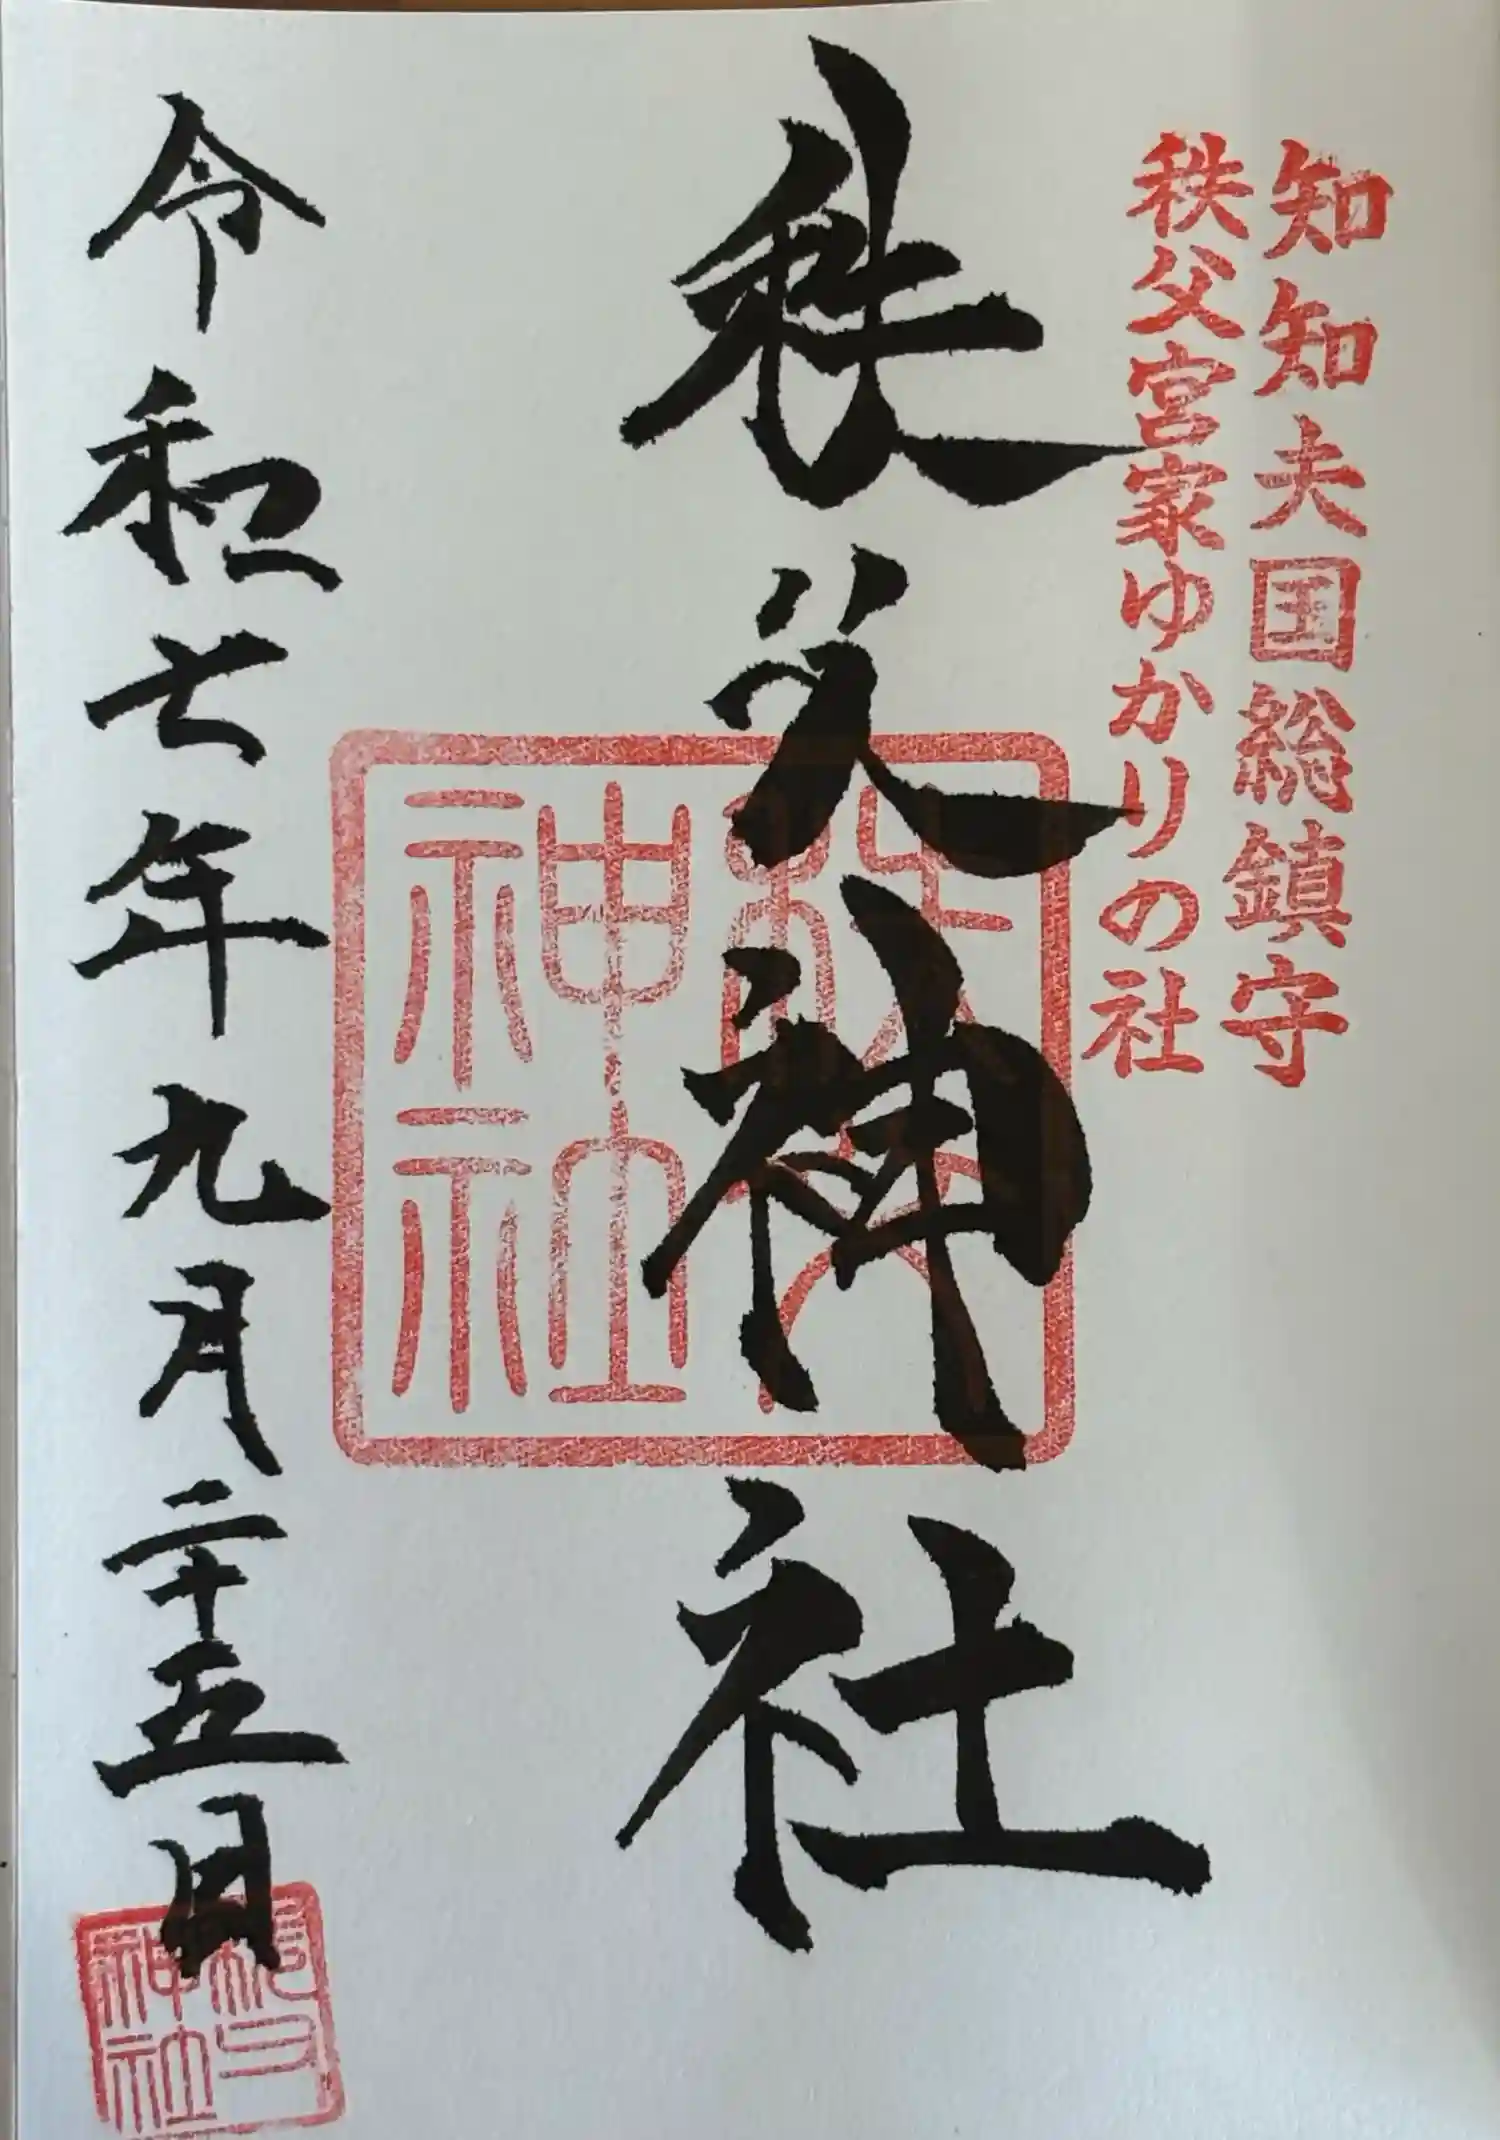 知知夫国総鎮守
秩父宮家ゆかりの社
秩父神社
秩父
神社
令和七年九月二十五日
秩父
神社